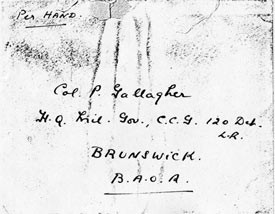 Per HAND.
Col. P. Gallagher
H.Q. Mil. Gov., C.C.G. 120 Det.
L.R.
BRUNSWICK.
B.A.O.R.